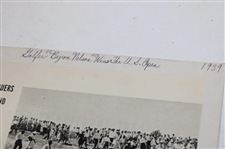 Golfer Byron Nelson Wins The U.S. Open 1939
UERS
ND